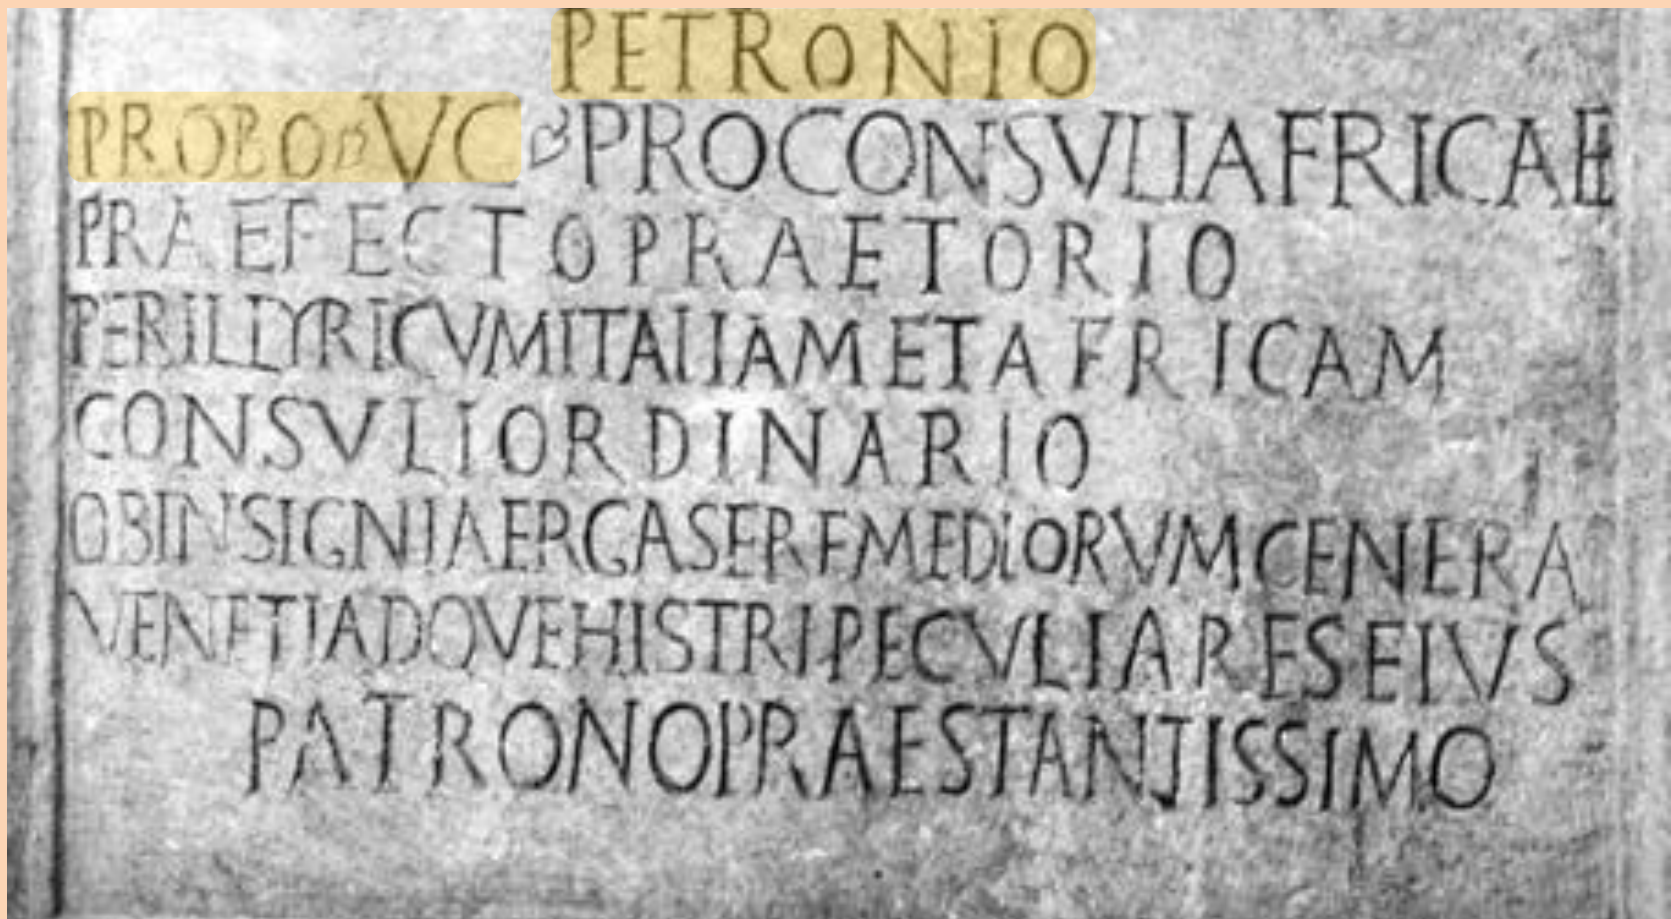 PETRONIO
PROBO VC PROCONSVLI AFRICAE
PRAEFECTO PRAETORIO
PER ILLYRICVM ITALIAM ET AFRICAM
CONSVLI ORDINARIO
OB INSIGNIA ERGA SE REMEDIORVM GENERA
VENETI ADQVE HISTRI PECVLIARES EIVS
PATRONO PRAESTANTISSIMO